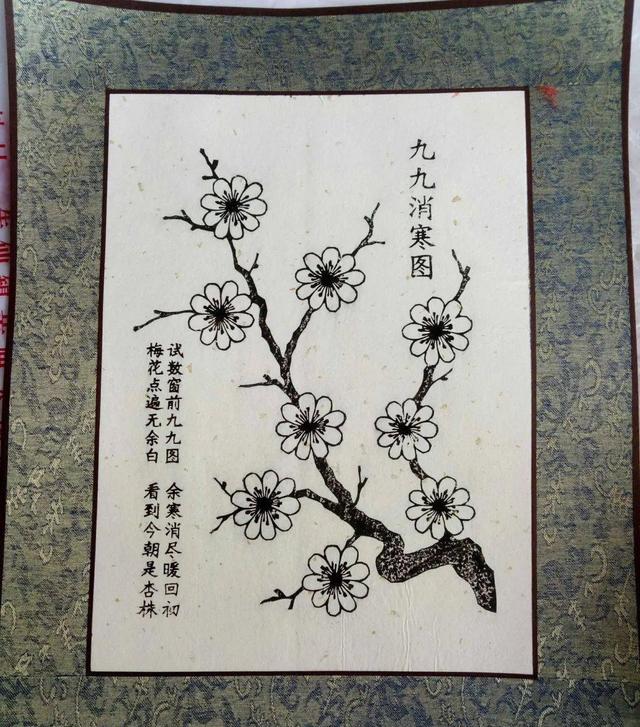 九九消寒图
试数窗前九九图 余寒消尽暖回初
梅花点遍无余白 看到今朝是杏株